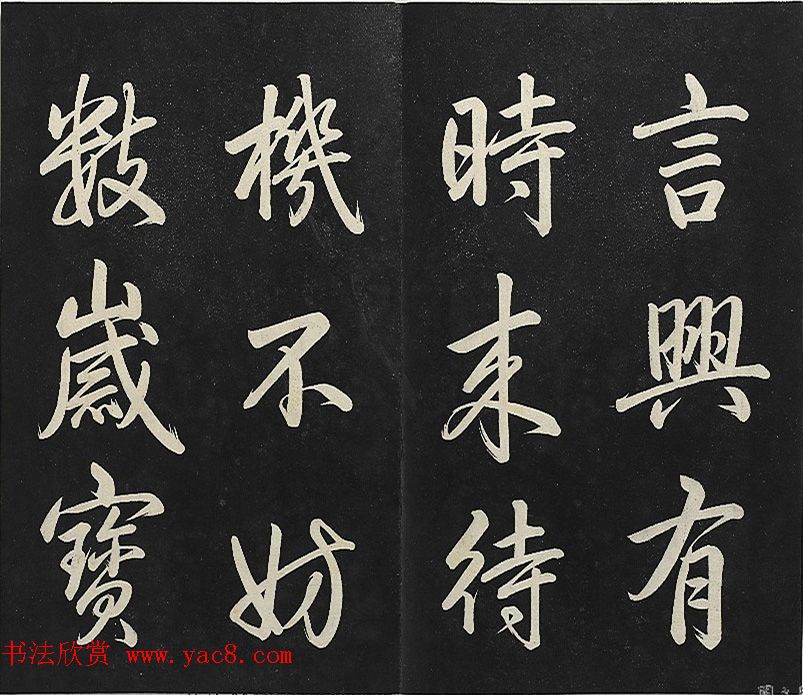 言興有
時来待
機不妨
數嵗寶
书法欣赏 www.yac8.com